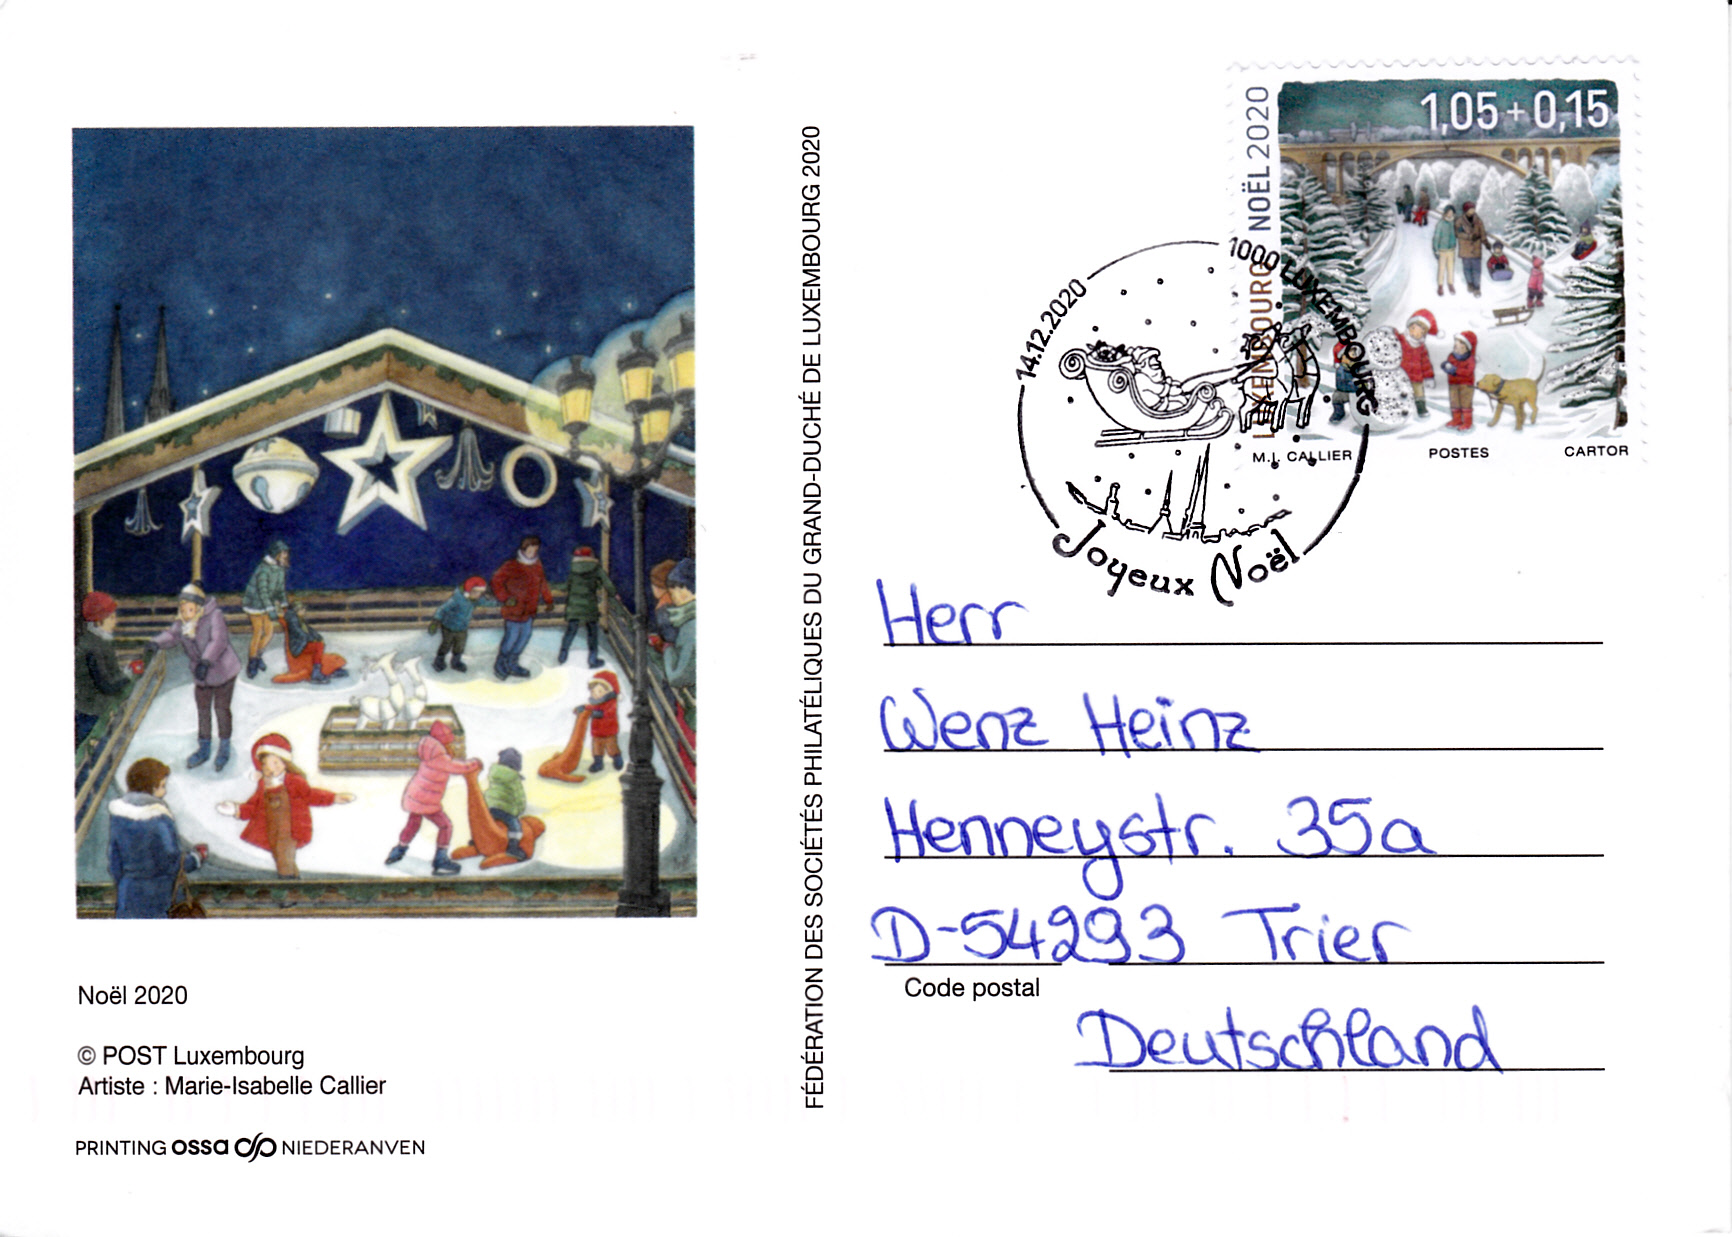 Noël 2020
© POST Luxembourg
Artiste : Marie-Isabelle Callier
PRINTING ossa NIEDERANVEN
FÉDÉRATION DES SOCIÉTÉS PHILATÉLIQUES DU GRAND-DUCHÉ DE LUXEMBOURG 2020
LUXEMBOURG NOËL 2020
1,05 + 0,15
M.I. CALLIER POSTES CARTOR
14.12.2020
1000 LUXEMBOURG
Joyeux Noël
Herr
Wenz Heinz
Henneystr. 35a
D-54293 Trier
Code postal
Deutschland